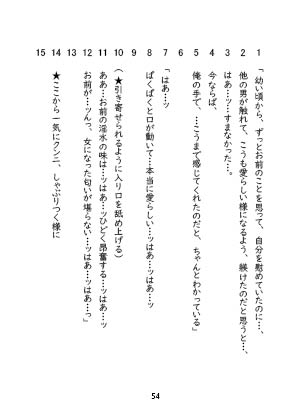 1 「幼い頃から、ずっとお前のことを思って、自分を慰めていたのに…、
2 他の男が触れて、こうも愛らしい様になるよう、躾けたのだと思うと…、
3 はぁ…ッ…すまなかった…。
4 今ならば、
5 俺の手で、…こうまで感じてくれたのだと、ちゃんとわかっている」
6
7 「はぁ…ッ
8 ぱくぱくと口が動いて…本当に愛らしい…ッはぁ…ッはぁ…ッ
9
10 (★引き寄せられるように入り口を舐め上げる)
11 ああ…お前の淫水の味は…ッはぁ…ッひどく昂奮する…ッはぁ…ッ
12 お前が…ッんっ、女になった匂いが堪らない…ッはぁ…ッはぁ…っ」
13
14 ★ここから一気にクンニ、しゃぶりつく様に
15
54